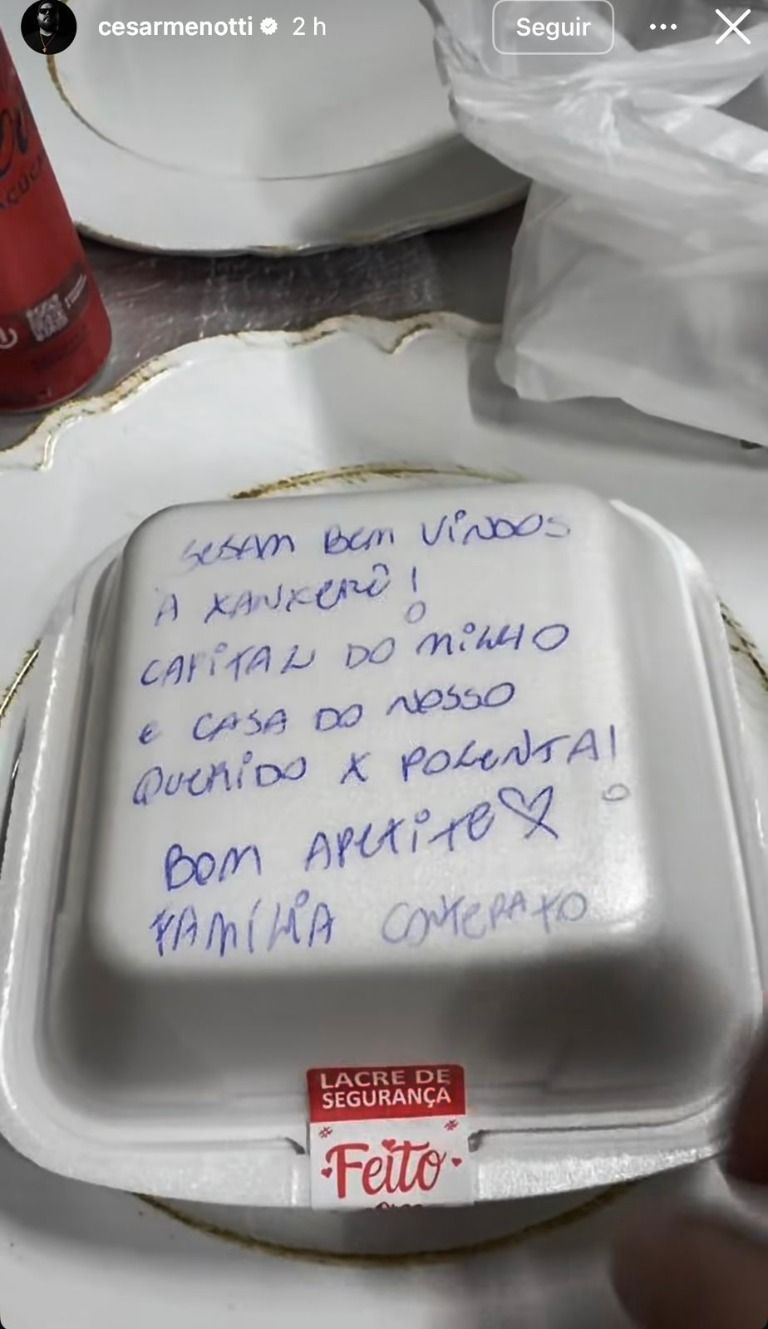 cesarmenotti 2 h Seguir
SEJAM BEM VINDOS
A XANXERÊ!
CAPITAL DO MILHO
E CASA DO NOSSO
QUERIDO X POLENTA!
BOM APETITE♡
FAMÍLIA CONTERATO
LACRE DE
SEGURANÇA
Feito